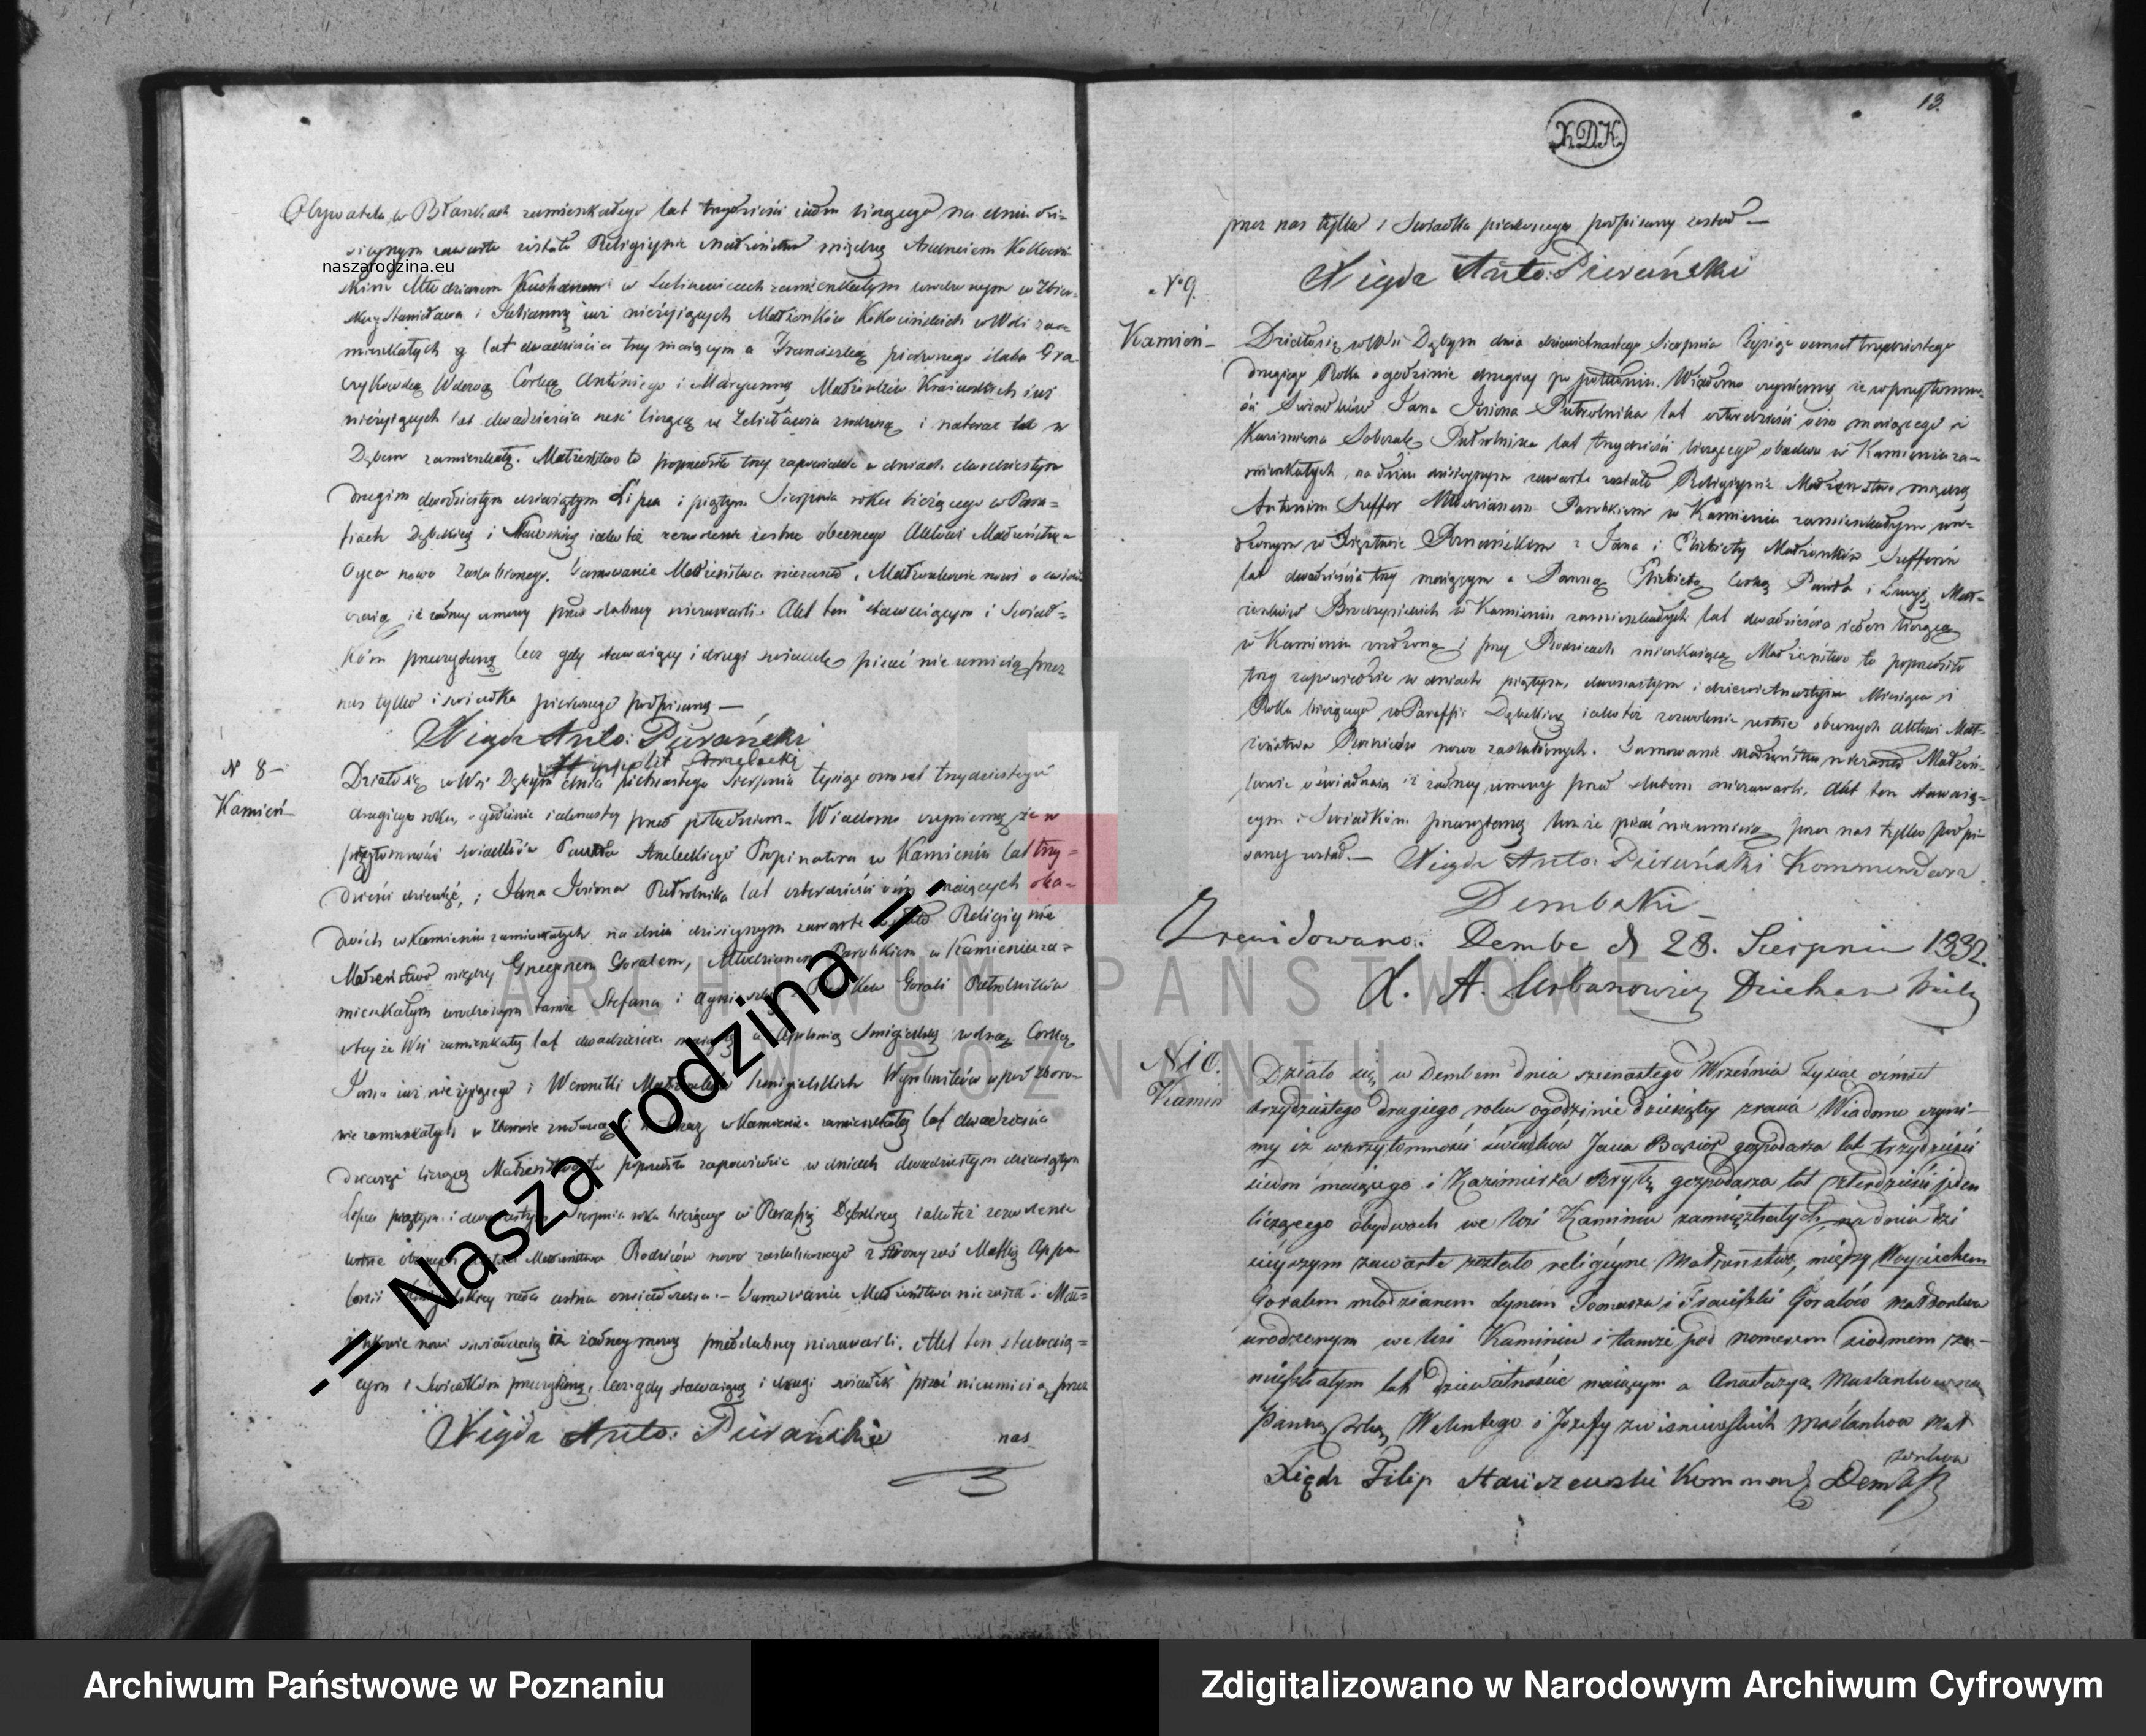 Obywatela w Błaszkach zamieszkałego lat trzydzieści siedm liczącego na dniu dzi-
sieyszym zawarte zostało Religijne Małżeństwo między
naszarodzina.eu
Młodzianem w zamieszkałym urodzonym w
Stanisława i Julianny już nieżyjących Małżonków w Woli za-
mieszkałych lat dwadzieścia trzy mającym a Franciszką pierwszego ślubu
Wdową Córką Antoniego i Maryanny Małżonków już
nieżyjących lat dwadzieścia sześć liczącą w zrodzoną i natenczas w
Dębem zamieszkałą. Małżeństwo to poprzedziły trzy zapowiedzie w dniach dwudziestym
drugim dwudziestym dziewiątym Lipca i piątym Sierpnia roku bieżącego w Para-
fiach Dębskiej i jako też zezwolenie ustne obecnego Aktowi Małżeństwa
Oyca nowo zaślubionego. Tamowanie Małżeństwa niezaszło, Małżonkowie nowi oświad-
czają iż żadnej umowy przedślubnej niezawarli. Akt ten stawającym i Świad-
kom przeczytany lecz gdy stawający i drugi świadek pisać nie umieją przez
nas tylko i świadka pierwszego podpisany —
Xiądz Anto: Pierański
N 8 —
Kamień
Działo się w Wsi Dębym dnia piętnastego Sierpnia tysiąc ośmset trzydziestego
drugiego roku, o godzinie iedenastej przed południem. Wiadomo czyniemy że w
przytomności świadków Pawła Propinatora w Kamieniu lat trzy-
dzieści dziewięć, i Jana Półrolnika lat czterdzieści ośm mających obu-
dwóch w Kamieniu zamieszkałych na dniu dzisiejszym zawarte zostało Religijne
Małżeństwo między Grzegorzem Goralem, Młodzianem Parobkiem w Kamieniu za-
mieszkałym urodzonym tamże Stefana i Agnieszki Górali Półrolników
w tejże Wsi zamieszkałych lat dwadzieścia mającym a Apolonią Śmigielską rodną Córką
Jana już nieżyjącego i Weroniki Małżonków Śmigielskich Wyrobników w
zamieszkałych w zrodzoną i w Kamieniu zamieszkałą lat dwadzieścia
liczącą Małżeństwo to poprzedziły zapowiedzie w dniach dwudziestym dziewiątym
Lipca piątym i dwunastym Sierpnia roku bieżącego w Parafii Dębskiej jako też zezwolenie
ustne obecnych Aktowi Małżeństwa Rodziców nowo zaślubionego z strony zaś Matki Appo-
lonii ustna oświadczenia. — Tamowanie Małżeństwa nie zaszło i Mał-
żonkowie nowi oświadczają iż żadney umowy przedślubney niezawarli. Akt ten stawają-
cym i Świadkom przeczytany, lecz gdy stawający i drugi świadek pisać nieumieją przez
Xiądz Anto: Pierański
nas
-= Nasza rodzina =-
13.
K.D.K.
przez nas tylko i Świadka pierwszego podpisany został —
Xiądz Anto: Pierański
N 9.
Kamień —
Działo się w Wsi Dębym dnia dziewietnastego Sierpnia Tysiąc ośmset trzydziestego
drugiego Roku o godzinie drugiej po południu. Wiadomo czyniemy że w przytomno-
ści Świadków Jana Półrolnika lat czterdzieści ośm mającego i
Kazimierza Półrolnika lat trzydzieści liczącego obadwa w Kamieniu za-
mieszkałych, na dniu dzisiejszym zawarte zostało Religijne Małżeństwo między
Antonim Szeffer Młodzianem Parobkiem w Kamieniu zamieszkałym uro-
dzonym w Xięstwie Poznańskim z Jana i Elżbiety Małżonków Szefferów
lat dwadzieścia trzy mającym a Panną Elżbietą Córką Pawła i Łucyi Mał-
żonków w Kamieniu zamieszkałych lat dwadzieścia ieden liczącą
w Kamieniu zrodzoną i przy Rodzicach mieszkającą Małżeństwo to poprzedziły
trzy zapowiedzie w dniach piątym, dwunastym i dziewietnastym Miesiąca i
Roku bieżącego w Paraffii Dębskiej iako też zezwolenie ustne obecnych aktowi Mał-
żeństwa Rodziców nowo zaślubionych. Tamowanie małżeństwa niezaszło Małżon-
kowie oświadczają iż żadney umowy przed ślubem niezawarli, Akt ten stawają-
cym i Świadkom przeczytany lecz że pisać nieumieją przez nas tylko podpi-
sany został. — Xiądz Anto: Pierański Kommendarz
Dembski —
Zrewidowano. Dembe d 28. Sierpnia 1832.
X. A. Urbanowicz Dziekan
N 10.
Kamin
Działo się w Dembem dnia szesnastego Września Tysiąc ośmset
trzydziestego drugiego roku o godzinie dziesiątey zrana Wiadomo czyni-
my iż w przytomności świadków Jana gospodarza lat trzydzieści
siedm maiącego i Kazimierza Bryły gospodarza lat czterdzieści jeden
liczącego obydwóch we Wsi Kaminiu zamięszkałych na dniu dzi
sieyszym zawarte zostało religijne Małżeństwo, między Woyciechem
Goralem młodzianem synem Tomasza i Franciszki Goralów małżonków
urodzonym we Wsi Kaminiu i tamże pod numerem siódmem za-
mięszkałym lat dziewiętnaście maiącym a Anastazyą Maslankowną
Panną Córką Walentego i Józefy z Wiśniewskich Maślanków Mał
żonków
Xiądz Filip Staniszewski Kommend Dembski
ARCHIWUM PAŃSTWOWE
W POZNANIU
Archiwum Państwowe w Poznaniu
Zdigitalizowano w Narodowym Archiwum Cyfrowym